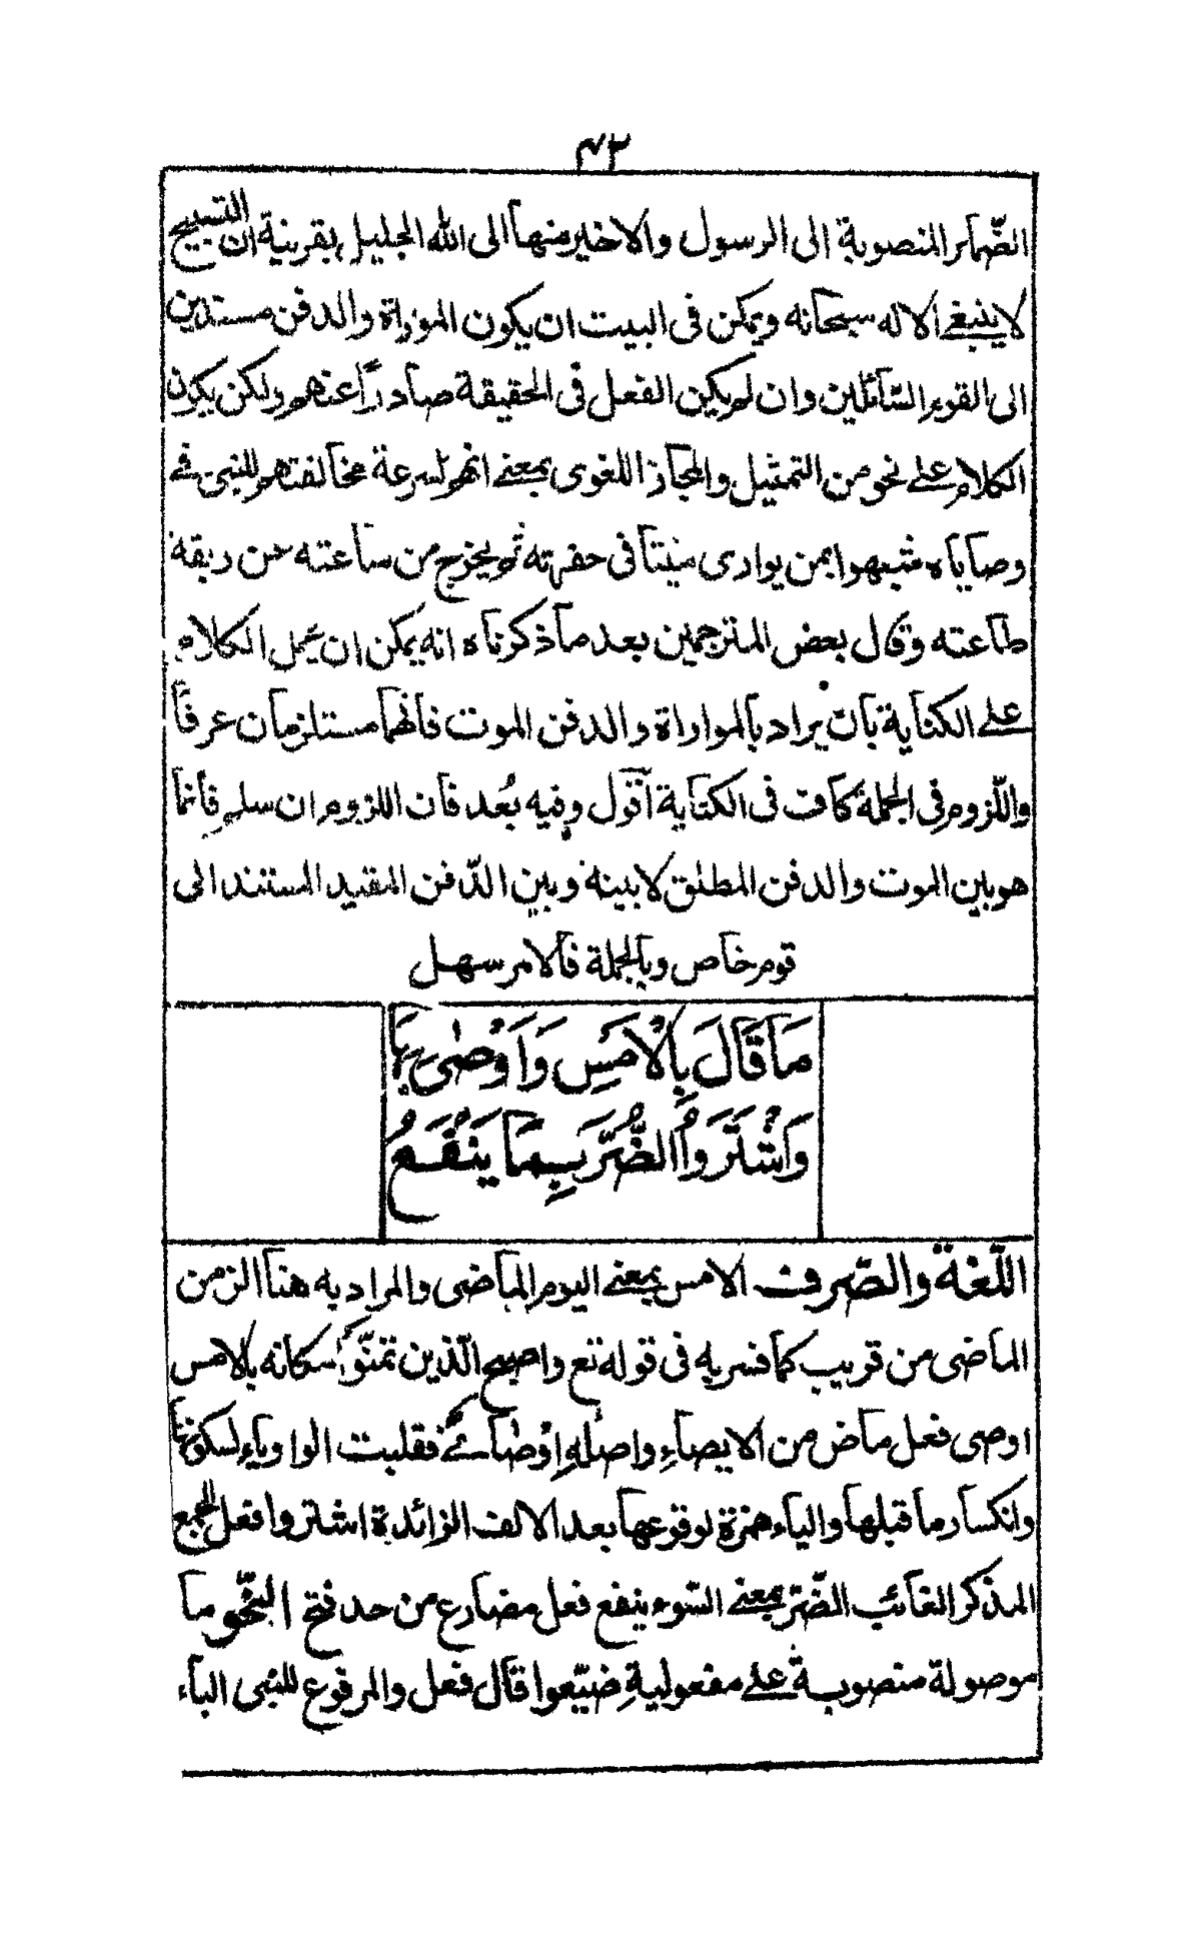 ٧٣
الضّمائر المنصوبة الى الرسول والاخير منها الى الله الجليل بقرينة ان التسبيح
لا ينبغى الا له سبحانه ويمكن فى البيت ان يكون المواراة والدفن مستندين
الى القوم السّائلين وان لم يكن الفعل فى الحقيقة صادراً عنهم ولكن يكون
الكلام على نحو من التمثيل والمجاز اللغوى بمعنى انهم لسرعة مخالفتهم للنبى فى
وصاياه شبهوا بمن يوارى ميتا فى حفرته ثم يخرج من ساعته عن ربقة
طاعته وقال بعض المترجمين بعد ما ذكرناه انه يمكن ان يحمل الكلام
على الكناية بان يراد بالمواراة والدفن الموت فانهما مستلزمان عرفاً
واللّزوم فى الجملة كاف فى الكناية اقول وفيه بُعد فان اللزوم ان سلم فانما
هو بين الموت والدفن المطلق لا بينه وبين الدّفن المقيد المستند الى
قوم خاص وبالجملة فالامر سهل
مَا قَالَ بِالْاَمْسِ وَاَوْصٰى بِهَا
وَاشْتَرَوُا الضُّرَّ بِمَا يَنْفَعُ
اللّغة والصّرف الامس بمعنى اليوم الماضى والمراد به هنا الزمن
الماضى من قريب كما فسر به فى قوله تع واصبح الّذين تمنّوا مكانه بالامس
اوصى فعل ماض من الايصاء واصله اِوْصَائٌ فقلبت الواو ياء لسكونها
وانكسار ما قبلها والياء همزة لوقوعها بعد الالف الزائدة اشتروا فعل الجمع
المذكر الغائب الضّر بمعنى السّوء ينفع فعل مضارع من حد فتح النّحو ما
موصولة منصوبة على مفعولية ضيّعوا قال فعل والمرفوع للنبى الباء